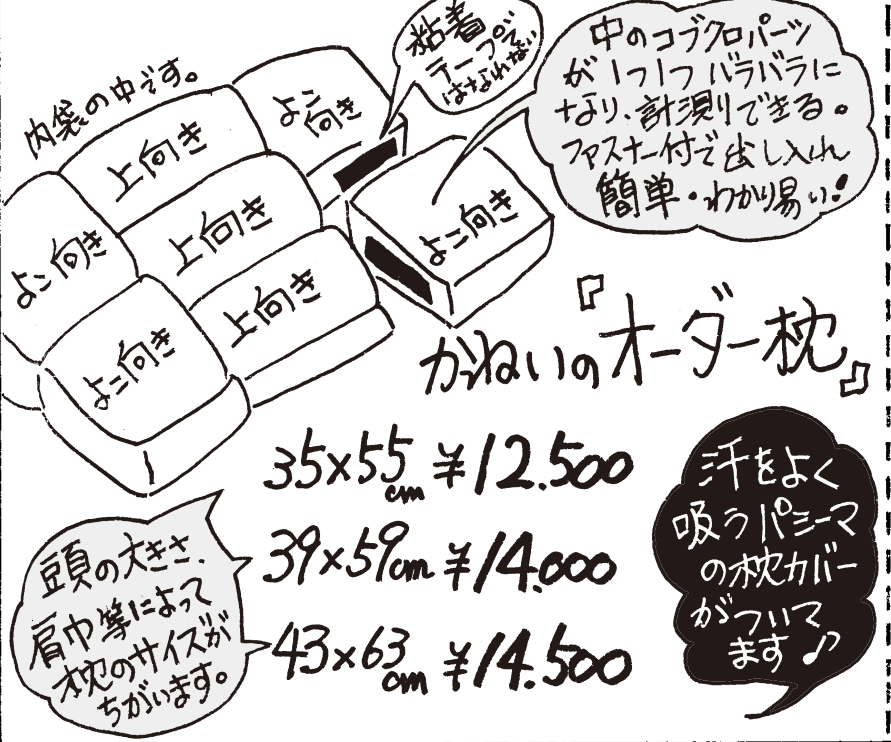 内袋の中です。
よこ向き
上向き
よこ向き
上向き
よこ向き
上向き
よこ向き
よこ向き
粘着
テープで
はなれない
中のコブクロパーツ
が1つ1つバラバラに
なり、計測りできる。
ファスナー付で出し入れ
簡単・わかり易い!
かねいの『オーダー枕』
35×55cm ¥12.500
39×59cm ¥14.000
43×63cm ¥14.500
頭の大きさ、
肩巾等によって
枕のサイズが
ちがいます。
汗をよく
吸うパシーマ
の枕カバー
がついて
ます♪